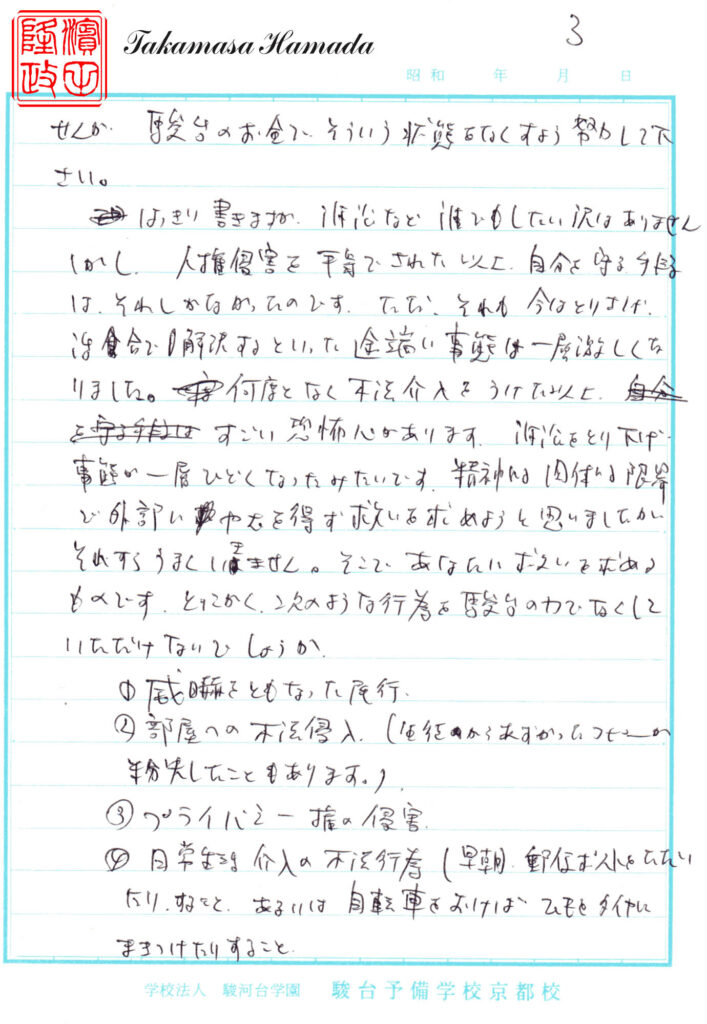 濱田隆政
Takamasa Hamada
3
昭和 年 月 日
せんか. 駿台のお金で、そういう状態をなくすよう努力して下
さい。
はっきり書きますが、訴訟など誰でもしたい訳はありません
しかし、人権侵害を平等でされた以上、自分を守る手段
は、それしかなかったのです. ただ、それも今はとりさげ、
で解決するといった途端に事態は一層激しくな
りました。何度となく不法介入をうけた以上、自分
を守る手段は すごい恐怖心があります. 訴訟をとり下げ
事態が一層ひどくなったみたいです. 精神的肉体的限界
で外部にやむを得ず救いを求めようと思いましたが
それすらうまくいきません。そこであなたに救いを求める
ものです. とにかく、次のような行為を駿台の力でなくして
いただけないでしょうか.
① 威嚇をともなった尾行.
② 部屋への不法侵入. (生徒からあずかった が
紛失したこともあります。)
③ プライバシー権の侵害.
④ 日常生活介入の不法行為 (早朝、郵便ポストをたたい
たり、すること、あるいは自転車をおけば ヒモをタイヤに
まきつけたりすること.
学校法人 駿河台学園 駿台予備学校京都校